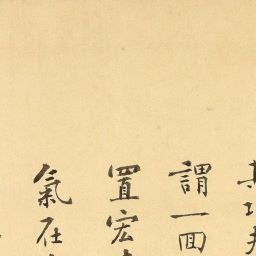 其功夫
謂一面
置宏
氣在